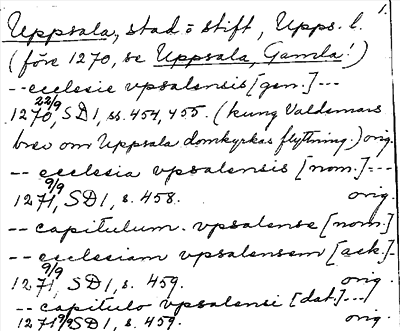 1.
Uppsala, stad o stift, Upps. l.
(före 1270, se Uppsala, Gamla!)
--ecclesie vpsalensis [gen.]---
1270 22/9, SD 1, ss. 454, 455. (kung Valdemars
brev om Uppsala domkyrkas flyttning.) orig.
-- ecclesia vpsalensis [nom.]---
1271 9/9, SD 1, s. 458. orig.
-- capitulum vpsalense [nom.]
-- ecclesiam vpsalensem [ack.]-
1271 9/9, SD 1, s. 459. orig.
-- capitulo vpsalensi [dat.]---
1271 9/9 SD 1, s. 459. orig.